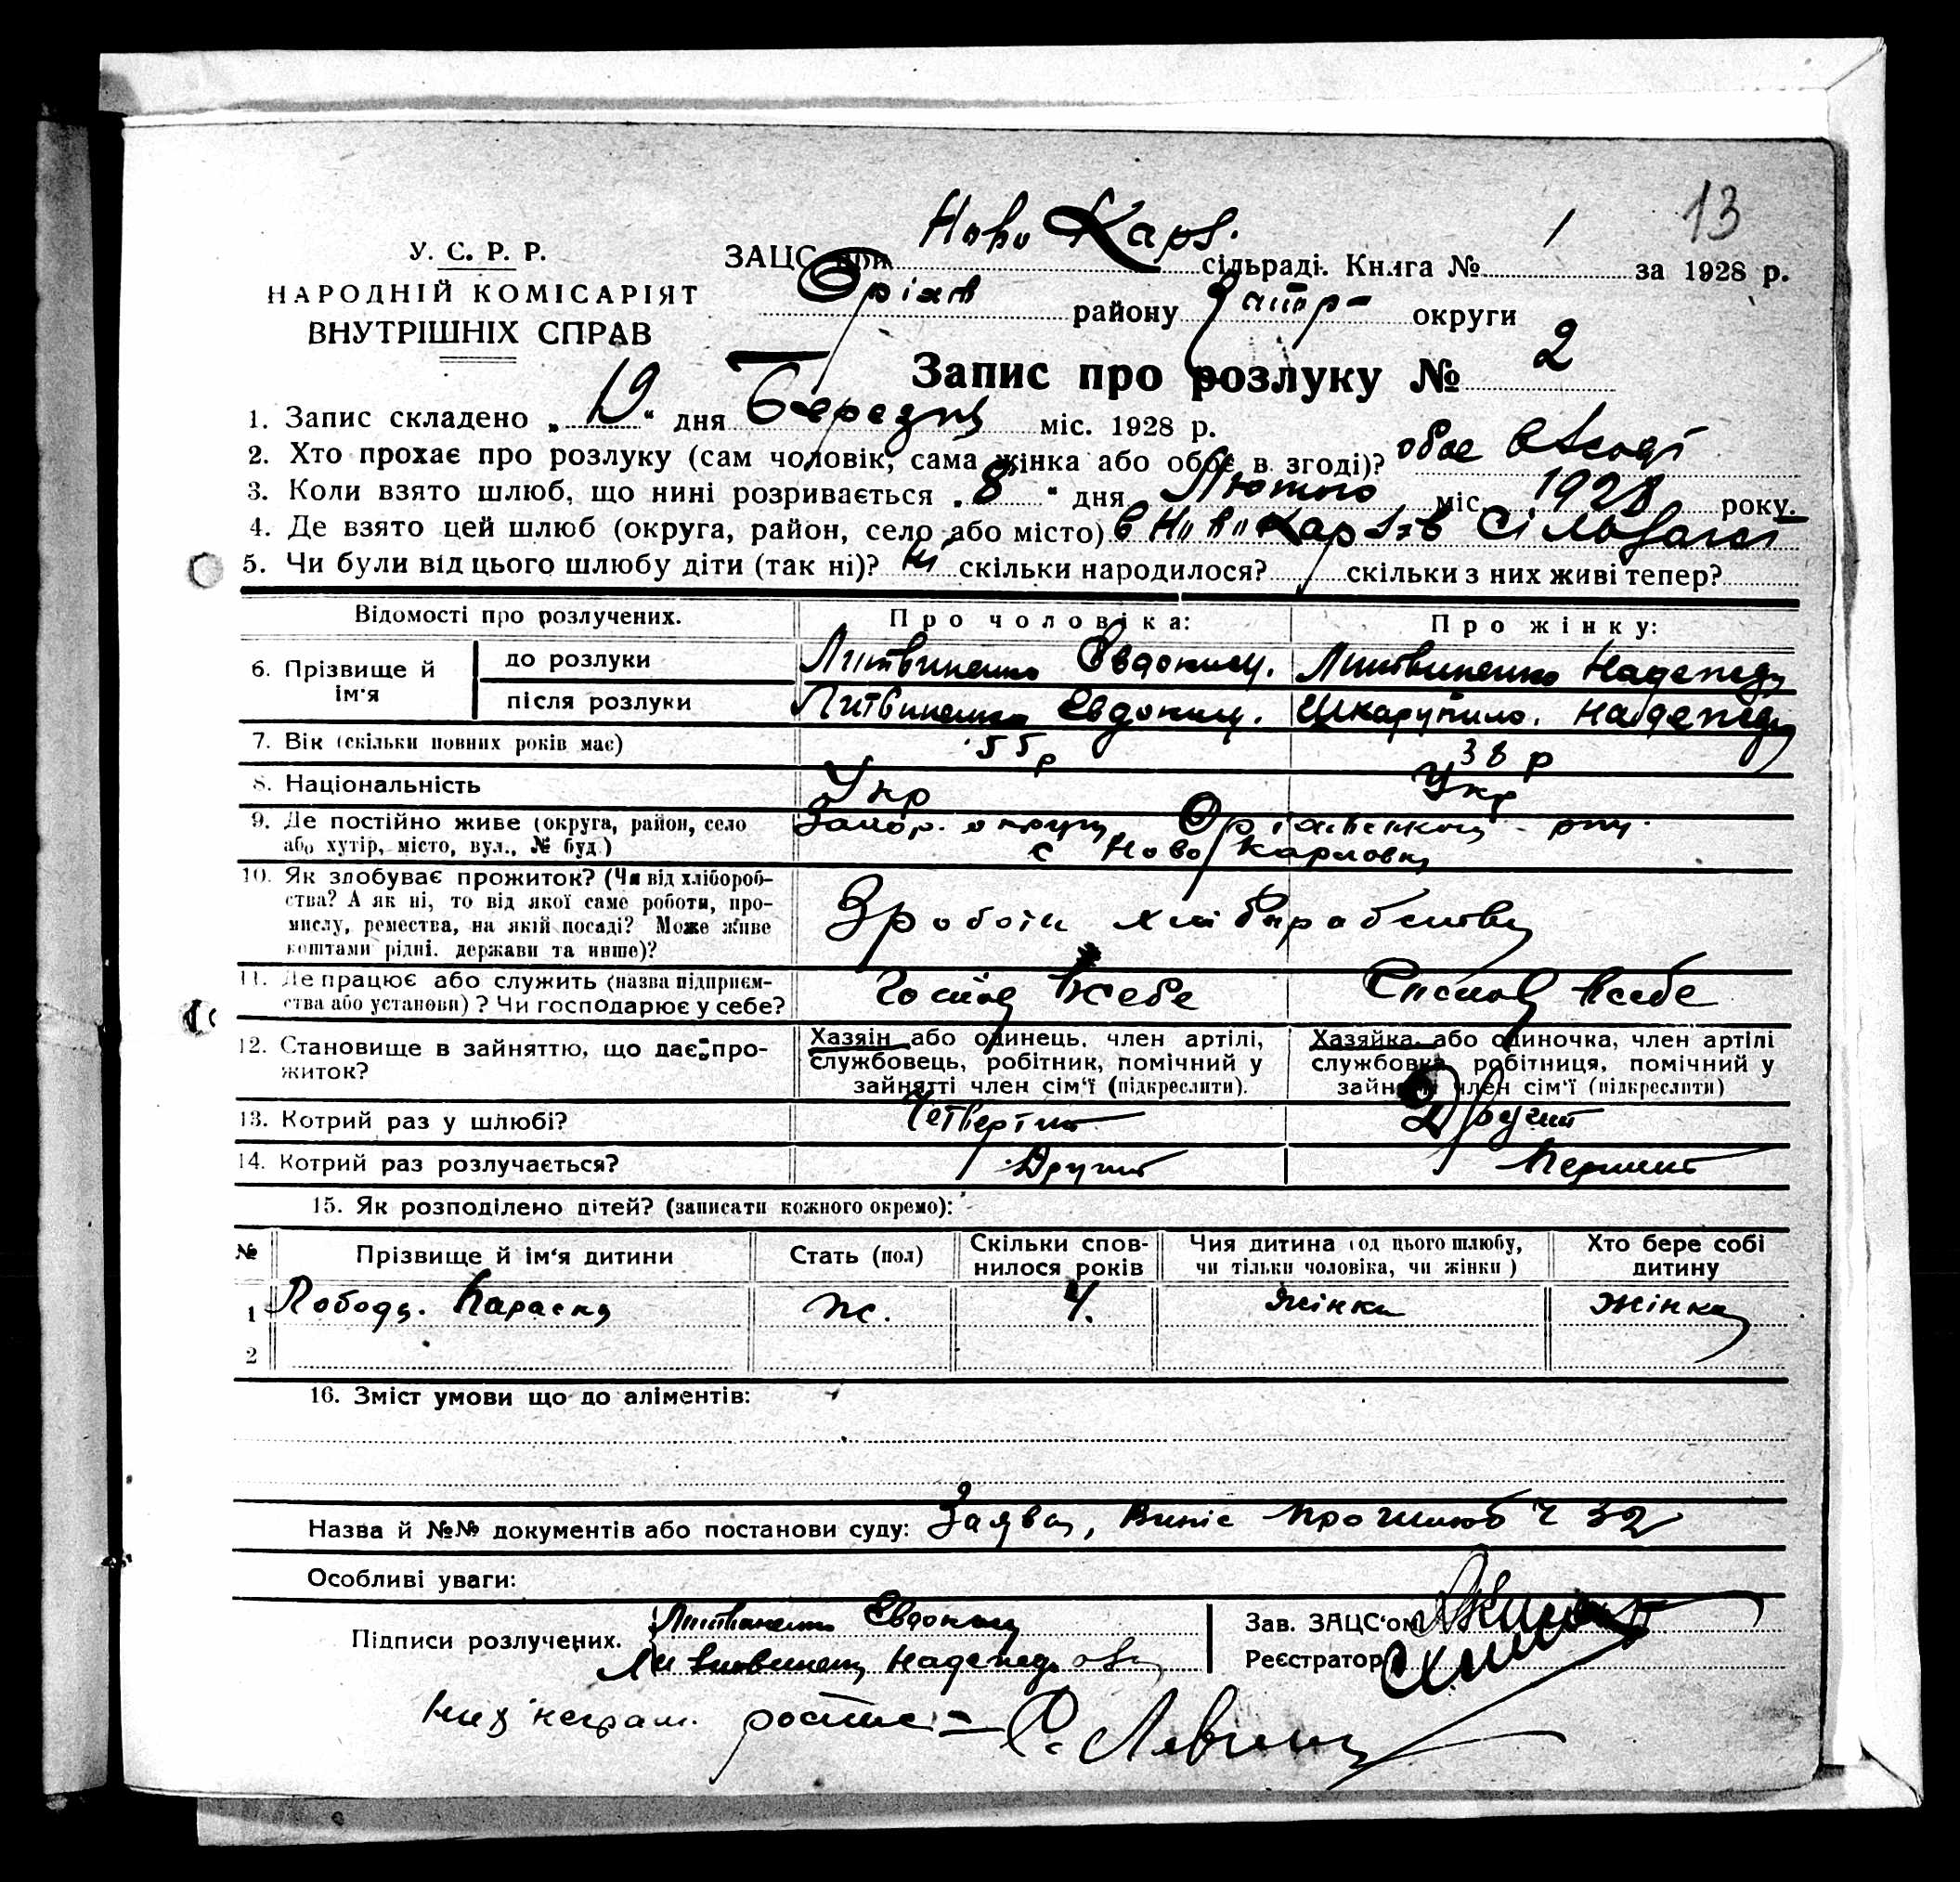 13
Ново Карл.
У. С. Р. Р.
ЗАЦС при сільраді. Книга № 1 за 1928 р.
НАРОДНІЙ КОМІСАРІЯТ
Оріхів району Запор- округи
ВНУТРІШНІХ СПРАВ
Запис про розлуку № 2
1. Запис складено „19“ дня Березня міс. 1928 р.
2. Хто прохає про розлуку (сам чоловік, сама жінка або обоє в згоді)? обое в згоді
3. Коли взято шлюб, що нині розривається „8“ дня Лютого міс. 1928 року.
4. Де взято цей шлюб (округа, район, село або місто) в Ново Карлів Сільраді
5. Чи були від цього шлюбу діти (так ні)? ні скільки народилося? скільки з них живі тепер?
Відомості про розлучених. Про чоловіка: Про жінку:
6. Прізвище й ім'я
до розлуки Литвиненко Евдоким. Литвиненко Надежда
після розлуки Литвиненко Евдоким. Шкарупило. Надежда
7. Вік (скільки повних років має) 55 р 38 р
8. Національність Укр Укр
9. Де постійно живе (округа, район, село Запор. округи Оріхівського р-ну.
або хутір, місто, вул., № буд.) с Ново Карловка
10. Як здобуває прожиток? (Чи від хлібороб-
ства? А як ні, то від якої саме роботи, про-
мислу, ремества, на якій посаді? Може живе
коштами рідні. держави та инше)?
Зроботи
11. Де працює або служить (назва підприєм-
ства або установи)? Чи господарює у себе?
Господ всебе Господ всебе
12. Становище в зайняттю, що дає про-
житок?
Хазяїн або одинець, член артілі,
службовець, робітник, помічний у
зайнятті член сім'ї (підкреслити).
Хазяйка або одиночка, член артілі
службовка, робітниця, помічний у
зайнятті член сім'ї (підкреслити)
13. Котрий раз у шлюбі? Четвертий Другий
14. Котрий раз розлучається? Другий Первий
15. Як розподілено дітей? (записати кожного окремо):
№ Прізвище й ім'я дитини Стать (пол) Скільки спов-
нилося років Чия дитина (од цього шлюбу,
чи тільки чоловіка, чи жінки) Хто бере собі
дитину
1 Лобода. Параска ж. 4. жінки жінка
2
16. Зміст умови що до аліментів:
Назва й №№ документів або постанови суду: Заява, Випис про шлюб Ч 32
Особливі уваги:
Підписи розлучених. Литвиненко Евдоким
Зав. ЗАЦС'ом
Литвиненко Надежда
Реєстратор
неграм.